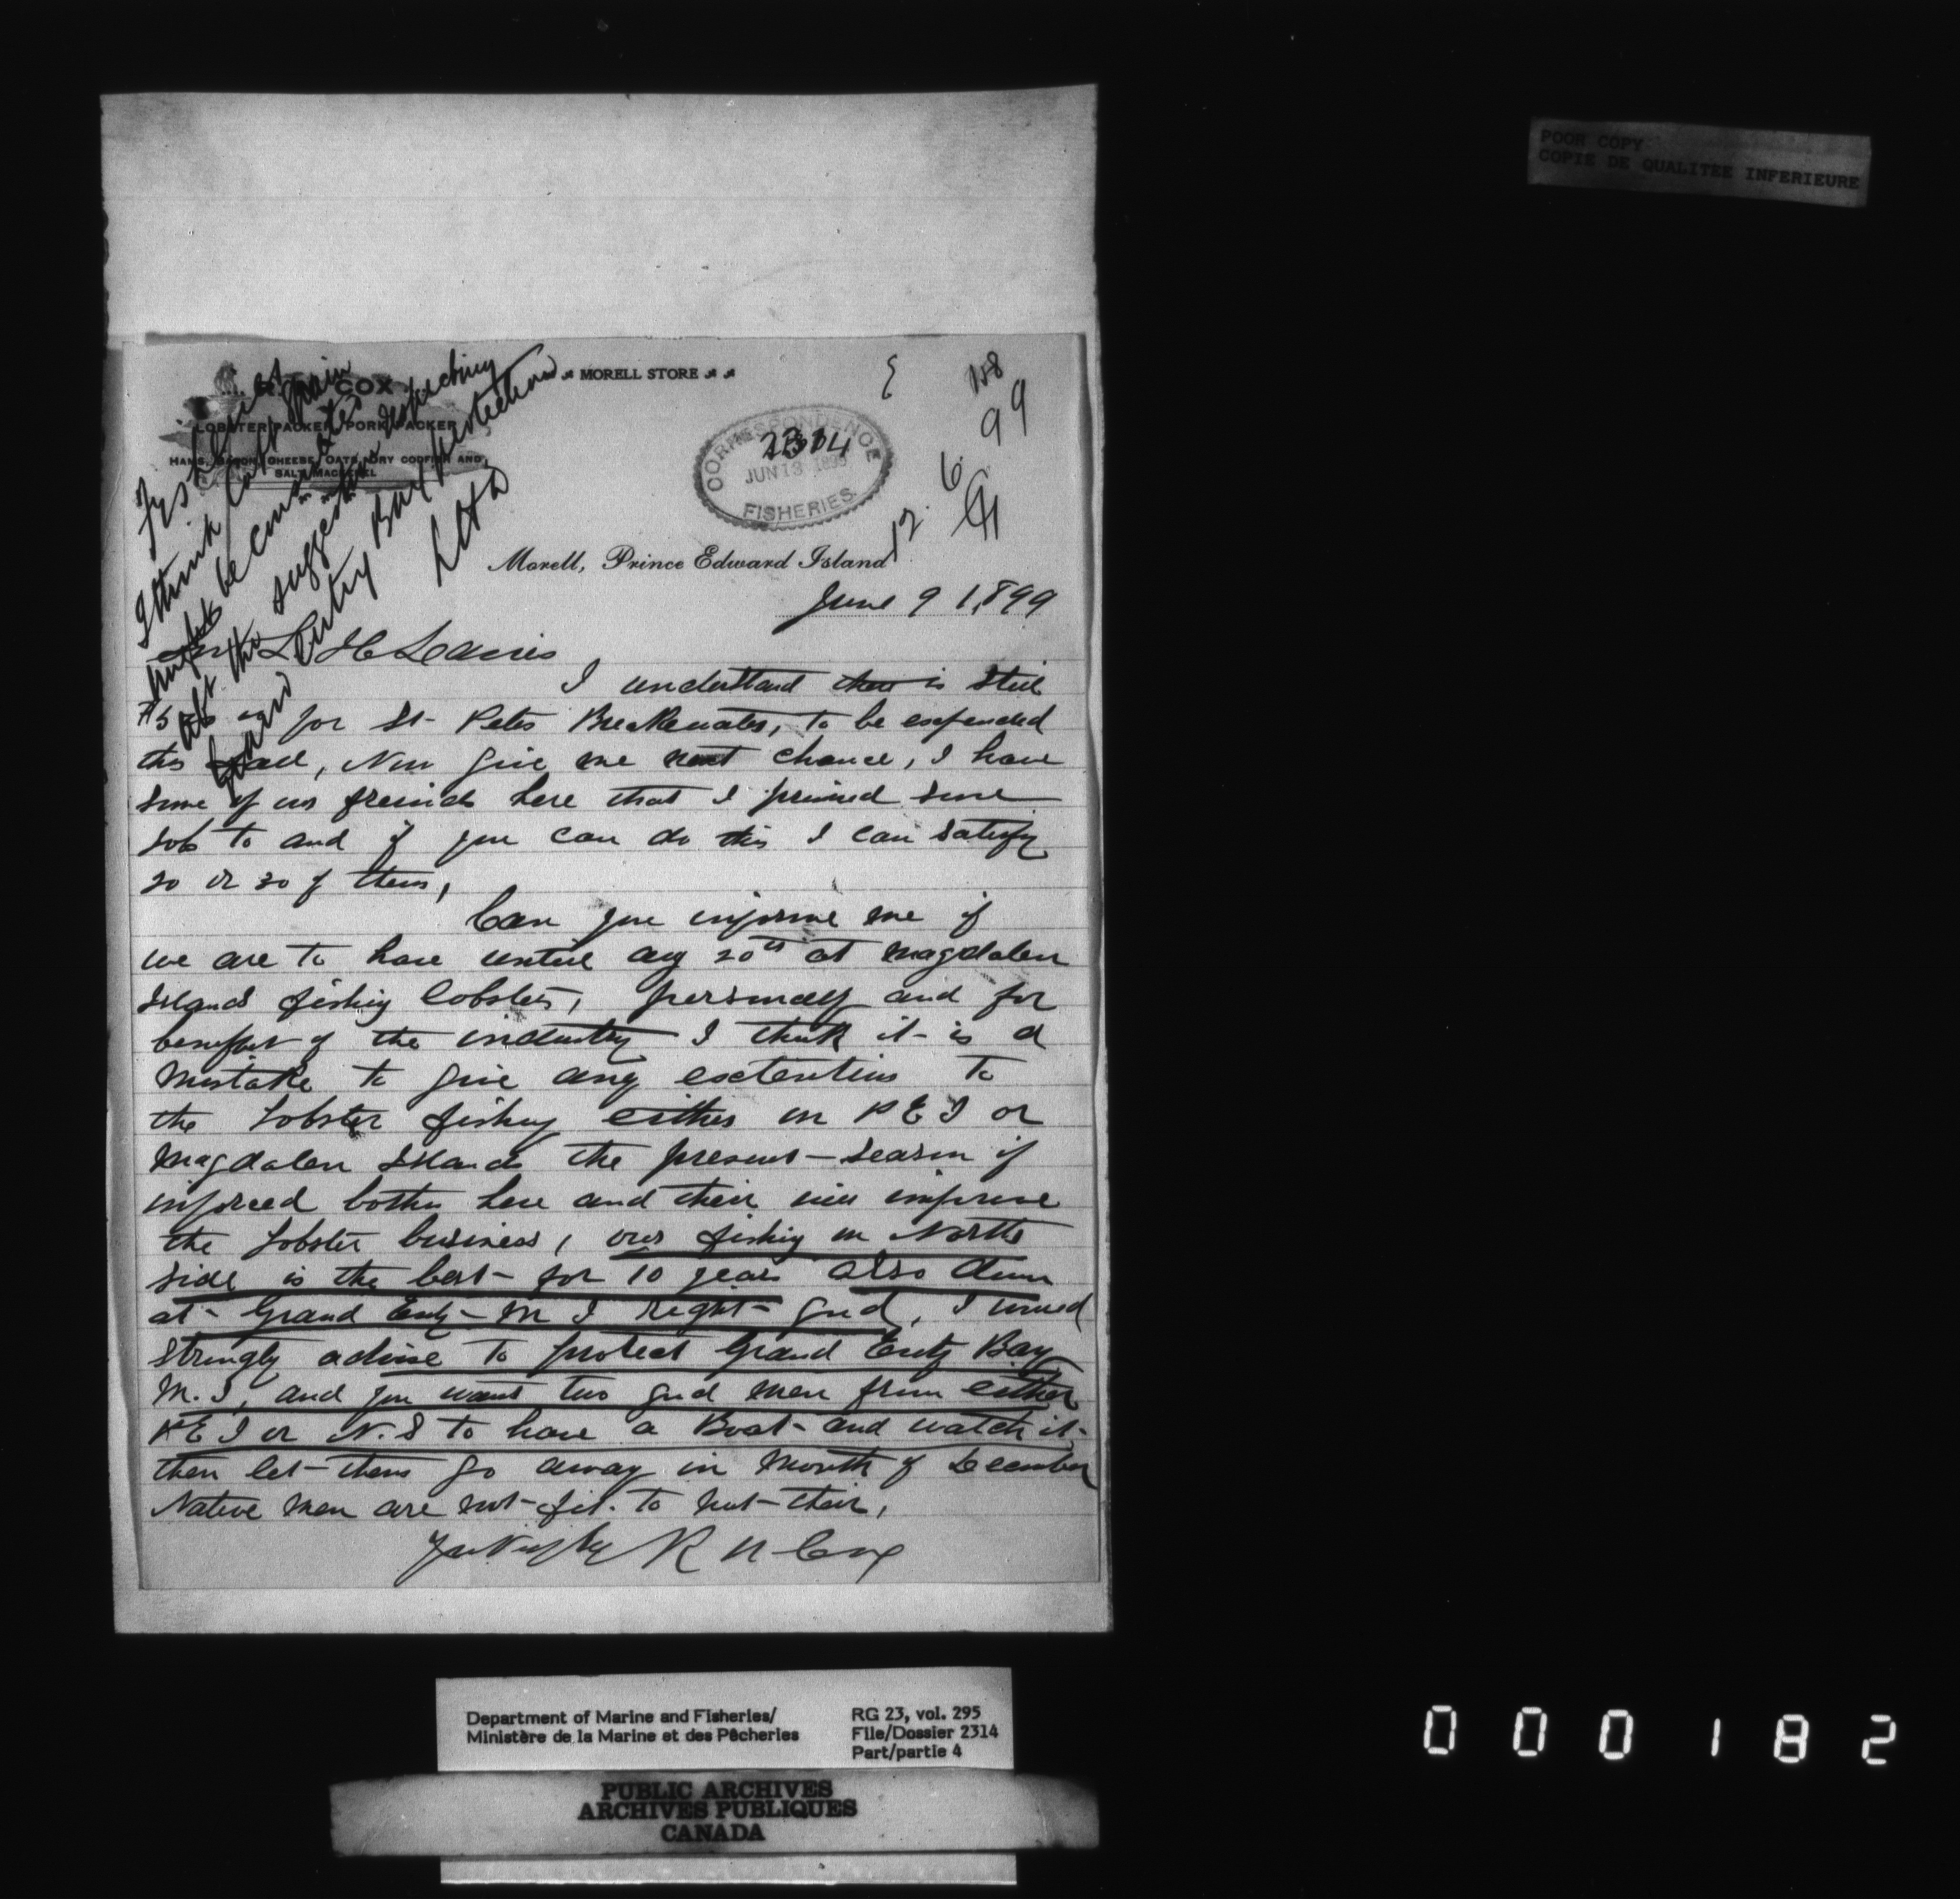 POOR COPY
COPIE DE QUALITEE INFERIEURE
COX
MORELL STORE
LOBSTER PACKER, PORK PACKER
HAMS, BACON, CHEESE, OATS, DRY CODFISH AND
SALT MACKEREL
I think Capt Spain
might be consulted
abt the suggestion respecting
Grand Entry Bay protection
CORRESPONDENCE
2314
JUN 13 1899
FISHERIES
158
99
12.6.
Morell, Prince Edward Island
June 9 1,899
L H Davies
I understand there is still
for St- Peters Breakwater, to be expended
this fall, Now give me next chance, I have
some of our freinds here that I promised some
job to and if you can do this I can satisfy
20 or 30 of them,
Can you informe me if
we are to have until aug 20th at Magdalen
Islands fishing lobsters, personaly and for
benefit of the industry I think it- is a
Mistake to give any extention to
the Lobster fishing either on P E I or
Magdalen Islands the present- season if
inforced bothe here and their will improve
the Lobster business, our fishing on North
side is the best- for 10 years also down
at- Grand Entry- M I Right- good, I would
strongly advise to protect Grand Entry Bay
M. I, and you want two good men from either
P E I or N. S to have a Boat- and watch it-
then let- them go away in Month of December
Native Men are not- fit. to put- their,
R N Cox
Department of Marine and Fisheries/
Ministère de la Marine et des Pêcheries
RG 23, vol. 295
File/Dossier 2314
Part/partie 4
PUBLIC ARCHIVES
ARCHIVES PUBLIQUES
CANADA
000182